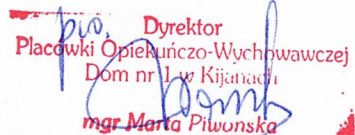 Dyrektor
Placówki Opiekuńczo-Wychowawczej
Dom nr 1 w Kijanach
mgr Marta Piwonska